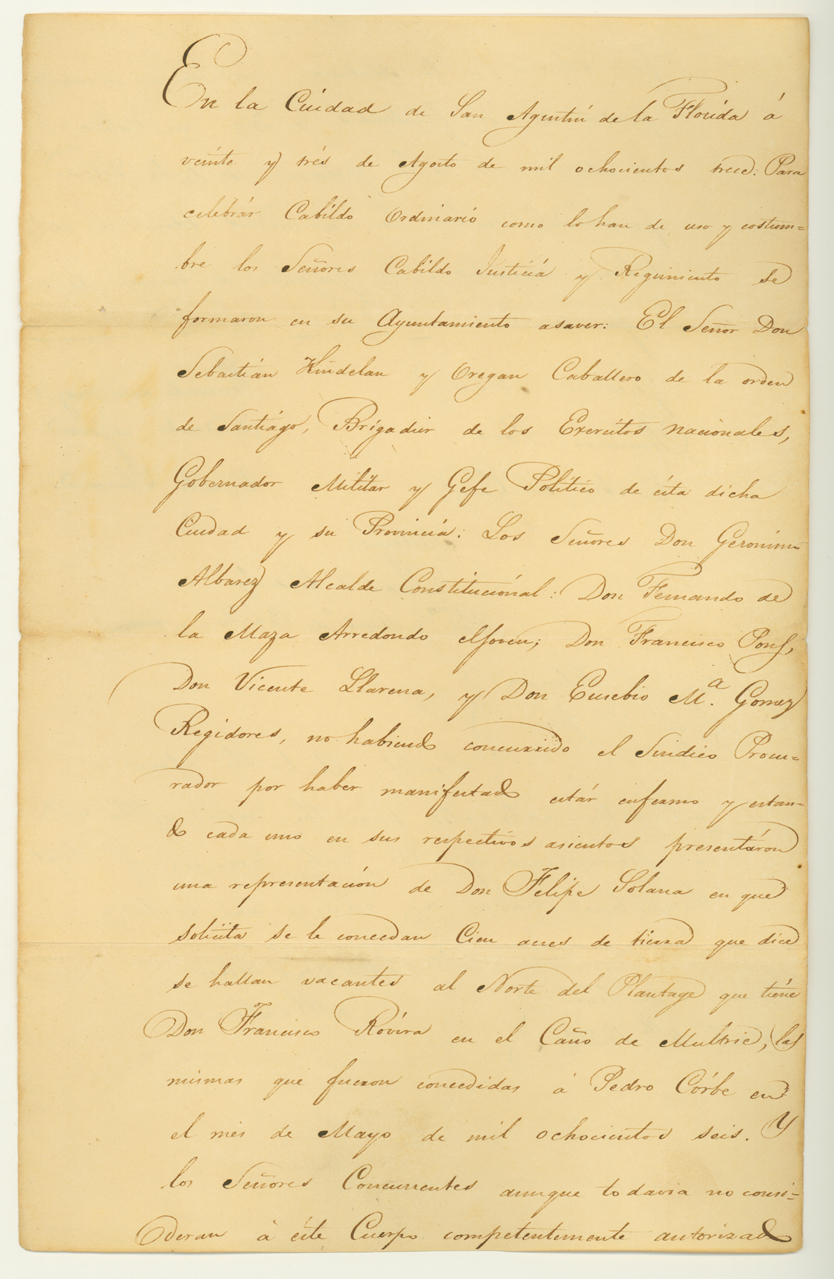 En la Ciudad de San Agustin de la Florida á
veinte y trés de Agosto de mil ochocientos trece: Para
celebrár Cabildo Ordinario como lo han de uso y costum=
bre los Señores Cabildo Justicia y Regimiento se
formaron en su Ayuntamiento asaver: El Señor Don
Sebastián Kindelan y Oregan Caballero de la orden
de Santiágo, Brigadier de los Exercitos nacionales,
Gobernador Militar y Gefe Político de ésta dicha
Ciudad y su Provincia: Los Señores Don Geronimo
Albarez Alcalde Constitucionál: Don Fernando de
la Maza Arredondo el Joven; Don Francisco Pons,
Don Vicente Llarena, y Don Eusebio M.ª Gomez
Regidores, no habiendo concurrido el Sindico Procu=
rador por haber manifestado estár enfermo y estan=
do cada uno en sus respectivos asientos presentáron
una representación de Don Felipe Solana en que
solicita se le concedan Cien acres de tierra que dice
se hallan vacantes al Norte del Plantage que tiéne
Don Francisco Róvira en el Caño de Multrie, las
mismas que fueron concedidas á Pedro Córbe en
el mes de Mayo de mil ochocientos seis. Y
los Señores Concurrentes aunque todavia no consi=
deran á éste Cuerpo competentemente autorizado